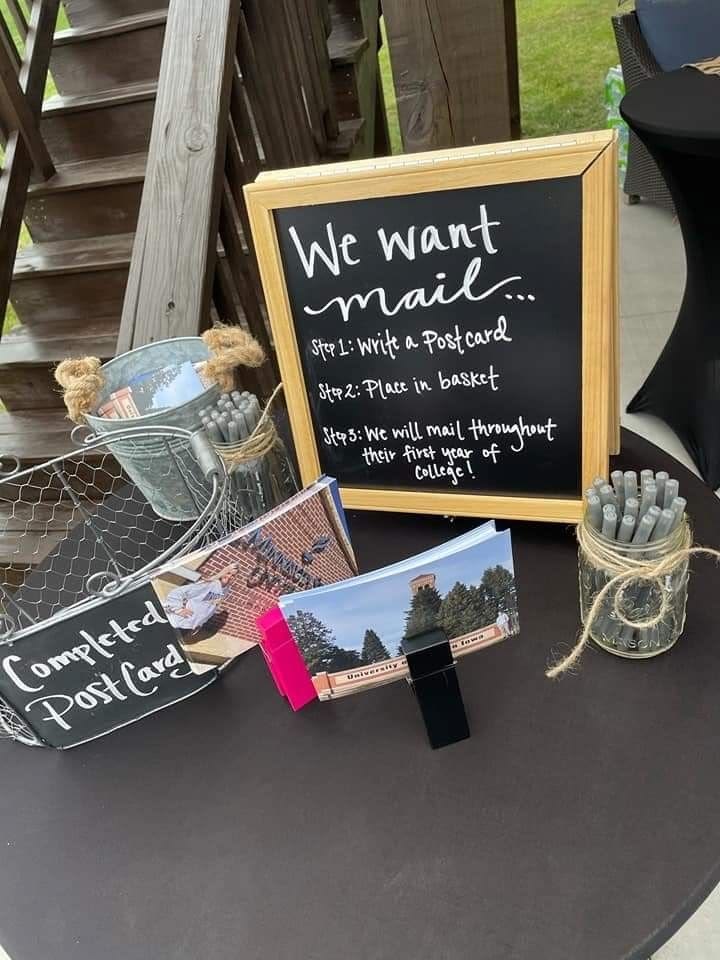 We want
mail...
Step 1: Write a Postcard
Step 2: Place in basket
Step 3: We will mail throughout
their first year of
College!
Completed
PostCard
University
Iowa
MASON